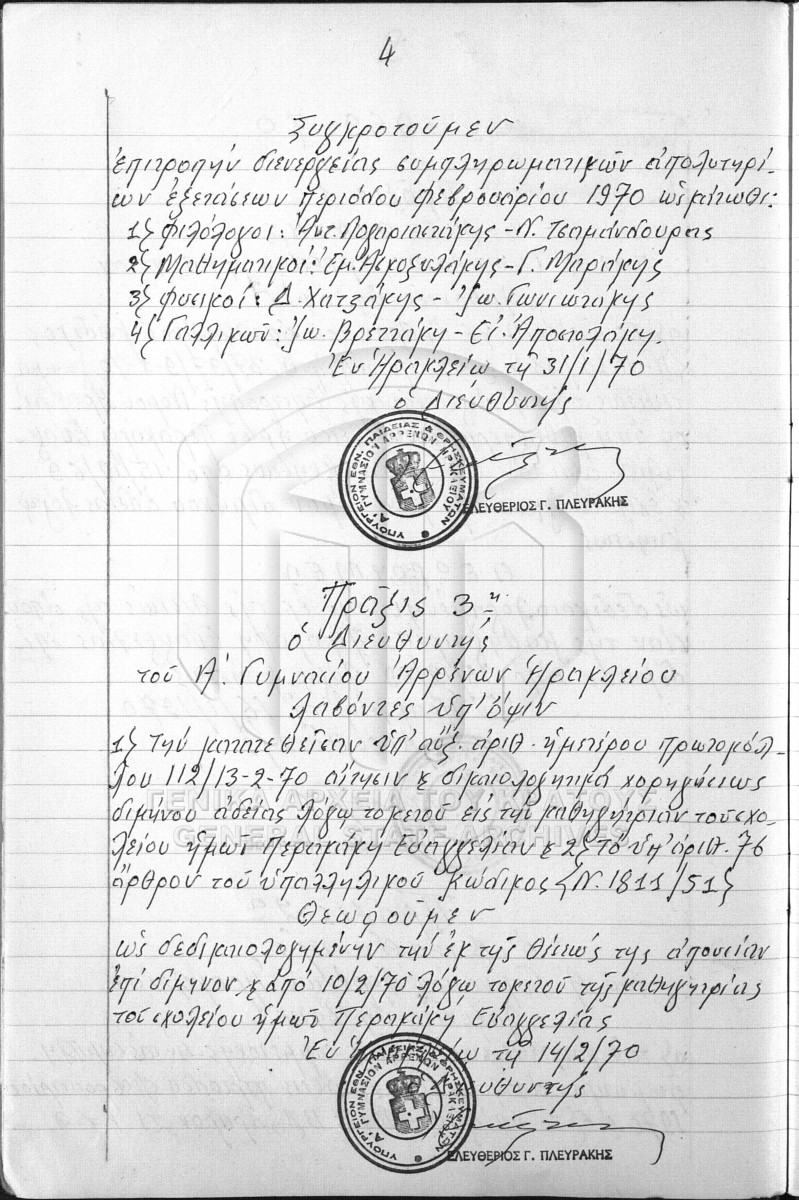 4
Συγκροτοῦμεν
ἐπιτροπήν διενεργείας συμπληρωματικῶν ἀπολυτηρί-
ων ἐξετάσεων περιόδου Φεβρουαρίου 1970 ὡς κάτωθι:
1) Φιλόλογοι: Ἀντ. Λογαριαστάκης - Ν. Τσαμάνδουρας
2) Μαθηματικοί: Ἐμ. Ἀσκοξυλάκης - Γ. Μαράκης
3) Φυσικοί: Δ. Χατζάκης - Ἰω. Γωνιωτάκης
4) Γαλλικῶν: Ἰω. Βρεττάκη - Εἰ. Ἀποστολάκη.
Ἐν Ἡρακλείῳ τῇ 31/1/70
ὁ Διευθυντής
ΥΠΟΥΡΓΕΙΟΝ ΕΘΝ. ΠΑΙΔΕΙΑΣ & ΘΡΗΣΚΕΥΜΑΤΩΝ
Α' ΓΥΜΝΑΣΙΟΝ ΑΡΡΕΝΩΝ ΗΡΑΚΛΕΙΟΥ
ΕΛΕΥΘΕΡΙΟΣ Γ. ΠΛΕΥΡΑΚΗΣ
Πρᾶξις 3η
ὁ Διευθυντής
τοῦ Α'. Γυμνασίου Ἀρρένων Ἡρακλείου
Λαβόντες ὑπ' ὄψιν
1) Τήν κατατεθεῖσαν ὑπ' αὔξ. ἀριθ. ἡμετέρου πρωτοκόλ-
λου 112/13-2-70 αἴτησιν & δικαιολογητικά χορηγήσεως
διμήνου ἀδείας λόγῳ τοκετοῦ εἰς τήν καθηγήτριαν τοῦ σχο-
λείου ἡμῶν Περακάκη Εὐαγγελίαν & 2) τό ὑπ' ἀριθ. 76
ἄρθρον τοῦ ὑπαλληλικοῦ Κώδικος (Ν. 1811/51)
ΓΕΝΙΚΑ ΑΡΧΕΙΑ ΤΟΥ ΚΡΑΤΟΥΣ
GENERAL STATE ARCHIVES
Θεωροῦμεν
ὡς δεδικαιολογημένην τήν ἐκ τῆς θέσεώς της ἀπουσίαν
ἐπί δίμηνον & ἀπό 10/2/70 λόγῳ τοκετοῦ τῆς καθηγητρίας
τοῦ σχολείου ἡμῶν Περακάκη Εὐαγγελίας
Ἐν Ἡρακλείῳ τῇ 14/2/70
ὁ Διευθυντής
ΥΠΟΥΡΓΕΙΟΝ ΕΘΝ. ΠΑΙΔΕΙΑΣ & ΘΡΗΣΚΕΥΜΑΤΩΝ
Α' ΓΥΜΝΑΣΙΟΝ ΑΡΡΕΝΩΝ ΗΡΑΚΛΕΙΟΥ
ΕΛΕΥΘΕΡΙΟΣ Γ. ΠΛΕΥΡΑΚΗΣ